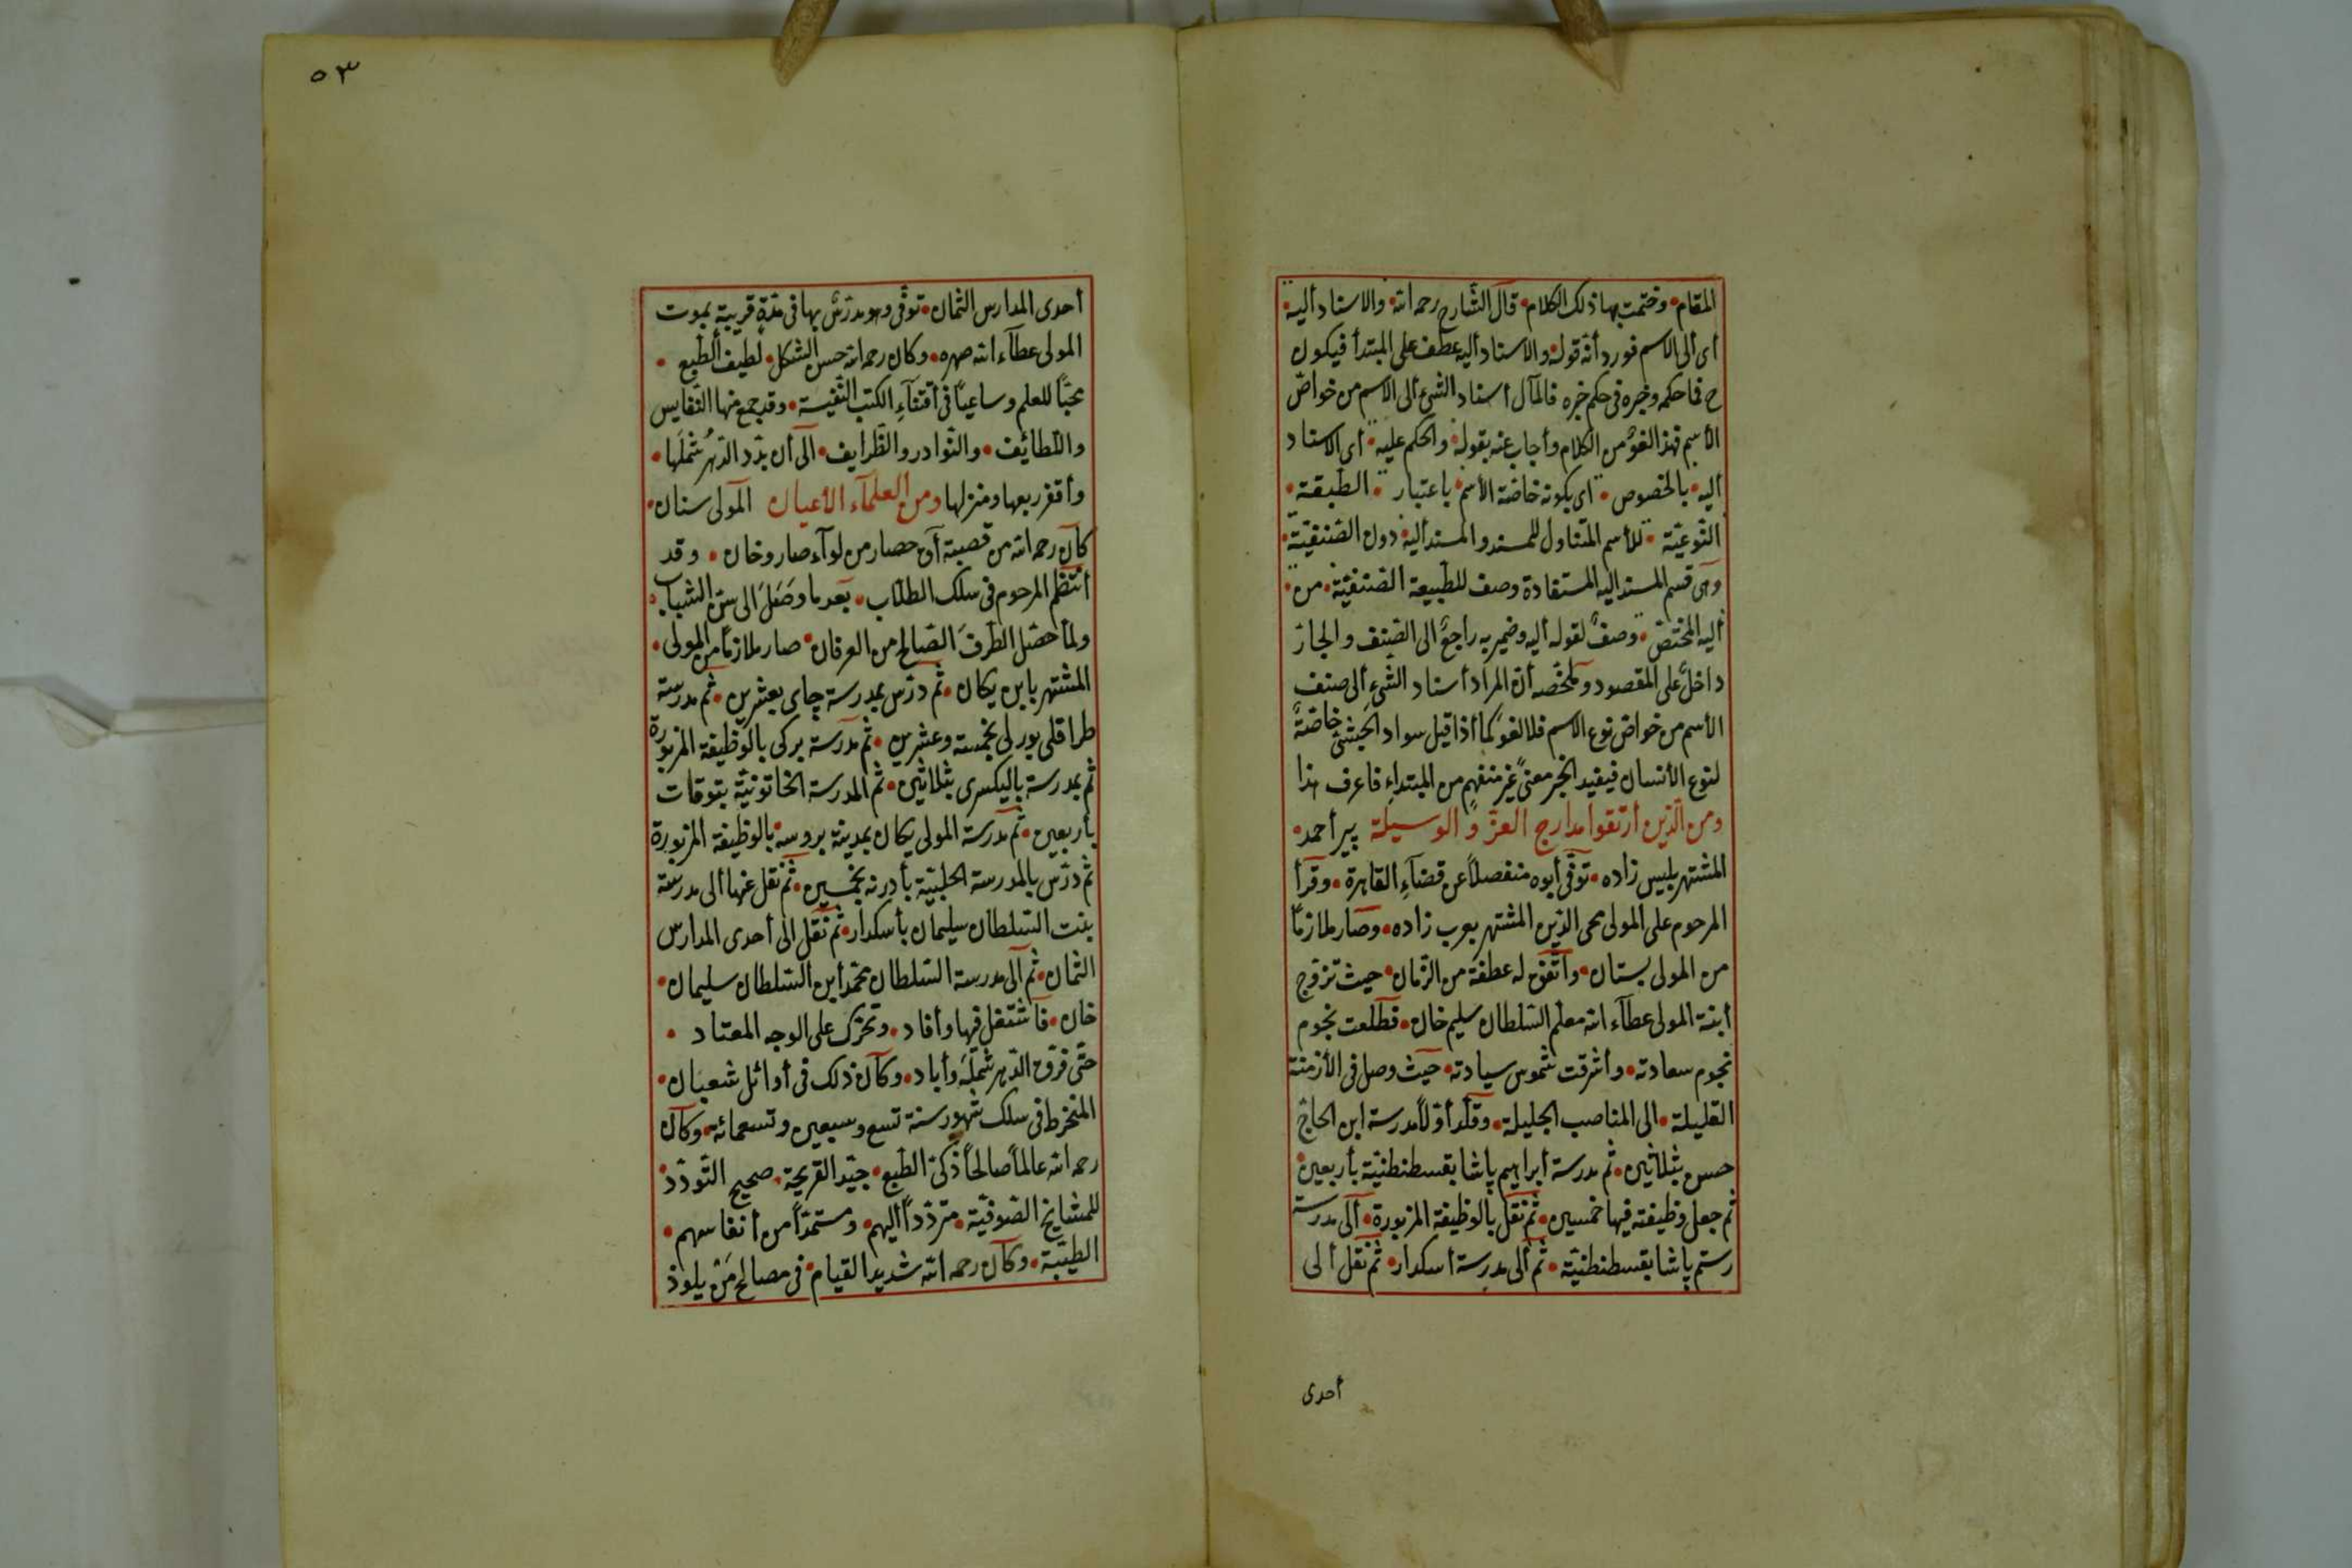 المقام • وختمت بها ذلك الكلام • قال الشارح رحمه الله • والاسناد أليه •
أى ألى الاسم فورد أنه قوله والاسناد أليه عطف على المبتدأ فيكون
ح فى حكمه وخبره فى حكم خبره فالمآل أسناد الشئ ألى الاسم من خواصّ
الأسم فهذا لغوٌ من الكلام وأجاب عنه بقوله • والحكم عليه • أى الاسناد
أليه • بالخصوص • أى بكونه خاصّة الأسم • باعتبار • الطبيعة •
النّوعيّة • للأسم المتناول للمسند والمسند أليه • دون الصّنفيّة •
وهى قسم المسند اليه المستفادة وصف للطّبيعة الصّنفيّة • من •
أليه المختصّ • وصفٌ لقوله أليه وضمير به راجعٌ الى الصّنف والجارّ
داخلٌ على المقصود وملخّصه أنّ المراد أسناد الشئِ ألى صنف
الأسم من خواصّ نوع الاسم فلا لغوَ كما أذا قيل سواد الحبشىّ خاصّةٌ
لنوع الأنسان فيفيد الخبر معنىً غير منفهمٍ من المبتداءِ فاعرف هذا
ومن الّذين أرتقوا مدارج العزّ والوسيلة پير أحمد •
المشتهر بليس زاده • توفّى أبوه منفصلاً عن قضاءِ القاهرة • وقرأ
المرحوم على المولى محى الدّين المشتهر بعرب زاده • وصار ملازماً
من المولى بستان • واتّفق له عطفة من الزّمان • حيث تزوّج
أبنة المولى عطآء الله معلّم السّلطان سليم خان • فطلعت نجوم
نجوم سعادته • وأشرقت شموس سيادته • حيث وصل فى الأزمنة
القليلة • الى المناصب الجليلة • وقلّد أوّلاً مدرسة ابن الحاجّ
حسن بثلاثين • ثم مدرسة أبراهيم پاشا بقسطنطنيّة بأربعين •
ثم جعل وظيفته فيها خمسين • ثم نقل بالوظيفة المزبورة • ألى مدرسة
رستم پاشا بقسطنطنيّة • ثم ألى مدرسة أسكدار • ثم نقل ألى
أحدى
٥٣
أحدى المدارس الثمان • توفّى وهو مدرّسٌ بها فى مدّةٍ قريبةٍ بموت
المولى عطآء الله صهره • وكان رحمه الله حسن الشكل • لطيف الطّبع •
محبّاً للعلم وساعياً فى أقتنآءِ الكتب النّفيسة • وقد جمع منها النّفايس
واللّطائف • والنّوادر والظّرايف • الى أن بدّد الدّهرُ شملَها •
وأقفر ربعها ومنزلها ومن العلمآء الأعيان المولى سنان •
كان رحمه الله من قصبة آق حصار من لوآء صاروخان • وقد
أنتظم المرحوم فى سلك الطلّاب • بعد ما وصَلَ الى سنّ الشباب •
ولمّا حصّل الطّرفَ الصّالح من العرفان • صار ملازماً من المولى •
المشتهر بابن يكان • ثم درّس بمدرسة چاى بعشرين • ثم مدرسة
طراقلى بورلى بخمسة وعشرين • ثم مدرسة بركى بالوظيفة المزبورة
ثم بمدرسة باليكسرى بثلاثين • ثم المدرسة الخاتونيّة بتوقات
بأربعين • ثم مدرسة المولى يكان بمدينة بروسه • بالوظيفة المزبورة
ثم درّس بالمدرسة الحلبيّة بأدرنه بخمسين • ثم نقل عنها ألى مدرسة
بنت السّلطان سليمان بأسكدار • ثم نقل الى أحدى المدارس
الثمان • ثم ألى مدرسة السّلطان محمّد أبن السّلطان سليمان •
خان • فاشتغل فيها وأفاد • وتحرّك على الوجه المعتاد •
حتّى فرّق الدّهر شملَه وأباد • وكان ذلك فى أوائل شعبان •
المنخرط فى سلك شهور سنة تسع وسبعين وتسعمائه • وكان
رحمه الله عالماً صالحاً ذكىّ الطّبع • جيّد القريحة • صحيح التّودّد
للمشايخ الصّوفيّة • متردّداً أليهم • ومستمدّاً من أنفاسهم •
الطيّبة • وكان رحمه الله شديد القيام • فى مصالح مَنْ يلوذ